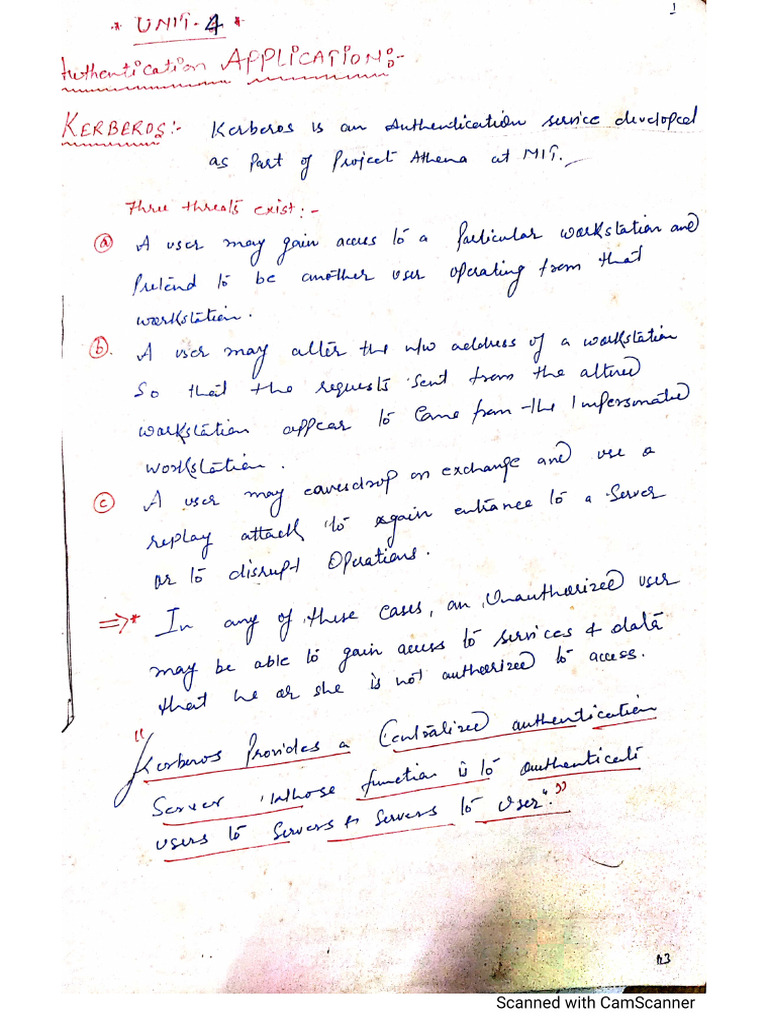 1
* UNIT-4 *
Authentication APPLICATION:-
KERBEROS:- Kerberos is an Authentication service developed
as Part of Project Athena at MIT.
Three threats exist:-
(a) A user may gain access to a Particular workstation and
Pretend to be another user operating from that
workstation.
(b). A user may alter the n/w address of a workstation
So that the requests sent from the altered
workstation appear to Come from the Impersonated
workstation.
(c) A user may eavesdrop on exchange and use a
replay attack to gain entrance to a Server
or to disrupt Operations.
=>* In any of these cases, an Unauthorized user
may be able to gain access to services & data
that he or she is not authorized to access.
"Kerberos Provides a Centralized authentication
Server whose function is to authenticate
users to Servers & Servers to User."
113
Scanned with CamScanner